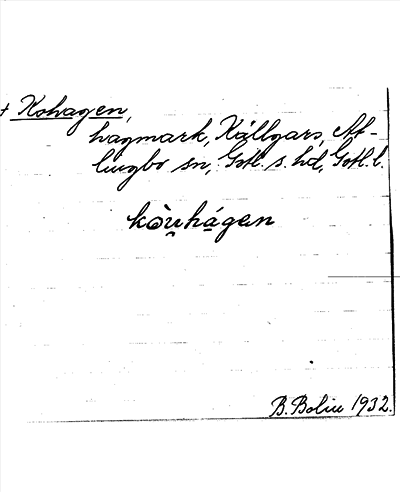 + Kohagen,
hagmark, Källgårs, At-
lingbo sn, Gotl. s. hd, Gotl. l.
kòu̯há̱gen
B. Bolin 1932.